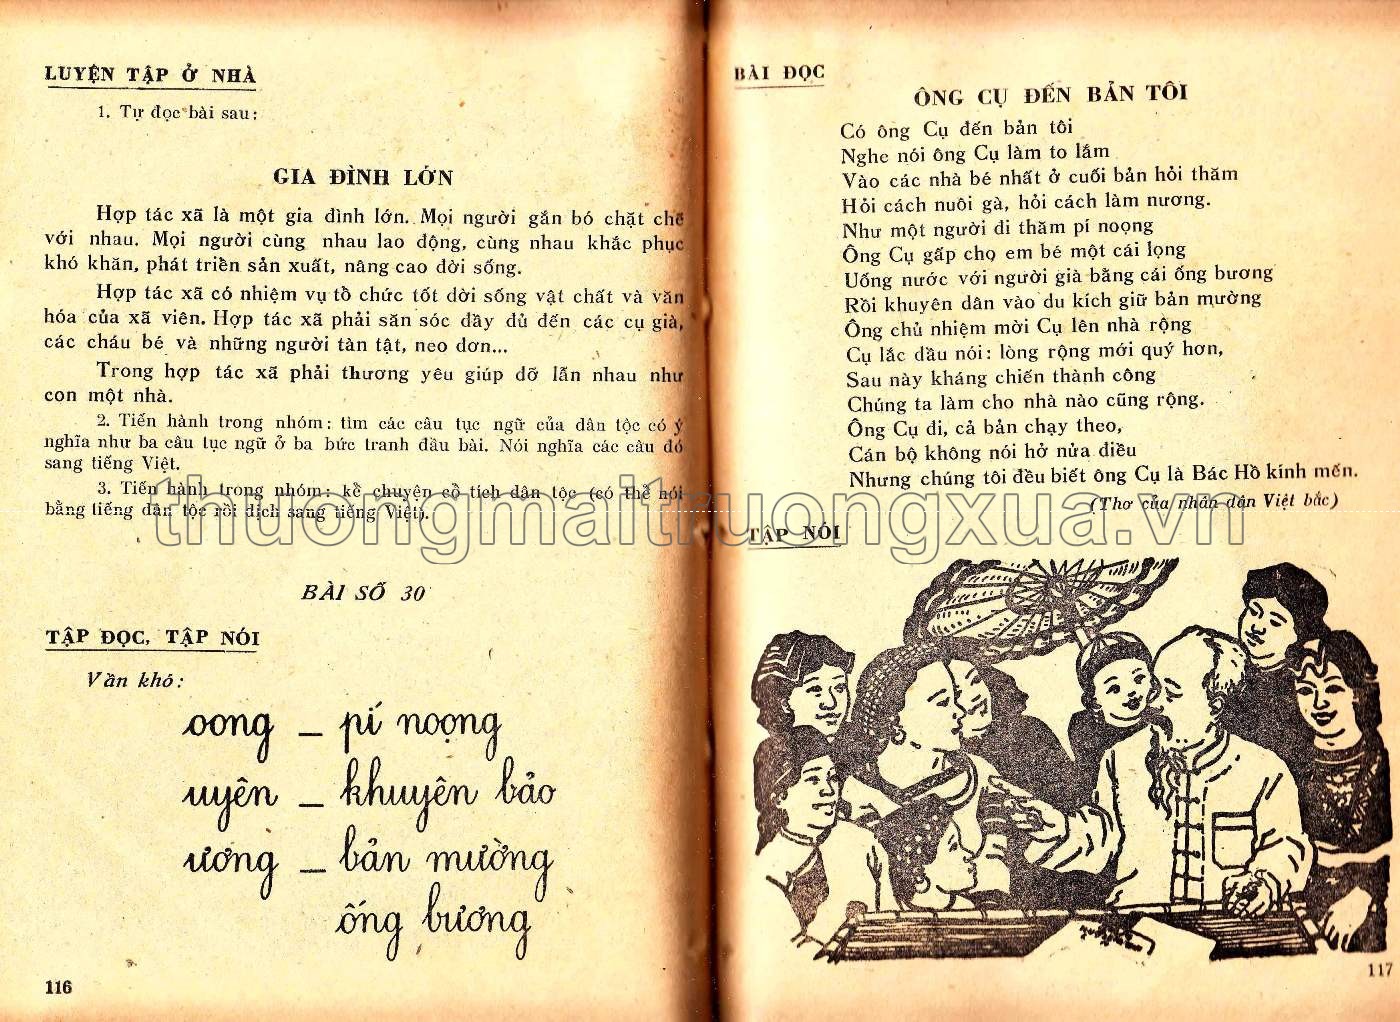 LUYỆN TẬP Ở NHÀ
1. Tự đọc bài sau:
GIA ĐÌNH LỚN
Hợp tác xã là một gia đình lớn. Mọi người gắn bó chặt chẽ
với nhau. Mọi người cùng nhau lao động, cùng nhau khắc phục
khó khăn, phát triển sản xuất, nâng cao đời sống.
Hợp tác xã có nhiệm vụ tổ chức tốt đời sống vật chất và văn
hóa của xã viên. Hợp tác xã phải săn sóc đầy đủ đến các cụ già,
các cháu bé và những người tàn tật, neo đơn...
Trong hợp tác xã phải thương yêu giúp đỡ lẫn nhau như
con một nhà.
2. Tiến hành trong nhóm: tìm các câu tục ngữ của dân tộc có ý
nghĩa như ba câu tục ngữ ở ba bức tranh đầu bài. Nói nghĩa các câu đó
sang tiếng Việt.
3. Tiến hành trong nhóm: kể chuyện cổ tích dân tộc (có thể nói
bằng tiếng dân tộc rồi dịch sang tiếng Việt).
BÀI SỐ 30
TẬP ĐỌC, TẬP NÓI
Vần khó:
oong – pí noọng
uyên – khuyên bảo
ương – bản mường
ống bương
116
BÀI ĐỌC
ÔNG CỤ ĐẾN BẢN TÔI
Có ông Cụ đến bản tôi
Nghe nói ông Cụ làm to lắm
Vào các nhà bé nhất ở cuối bản hỏi thăm
Hỏi cách nuôi gà, hỏi cách làm nương.
Như một người đi thăm pí noọng
Ông Cụ gấp cho em bé một cái lọng
Uống nước với người già bằng cái ống bương
Rồi khuyên dân vào du kích giữ bản mường
Ông chủ nhiệm mời Cụ lên nhà rộng
Cụ lắc đầu nói: lòng rộng mới quý hơn,
Sau này kháng chiến thành công
Chúng ta làm cho nhà nào cũng rộng.
Ông Cụ đi, cả bản chạy theo,
Cán bộ không nói hở nửa điều
Nhưng chúng tôi đều biết ông Cụ là Bác Hồ kính mến.
(Thơ của nhân dân Việt bắc)
TẬP NÓI
117
thuongmaitruongxua.vn